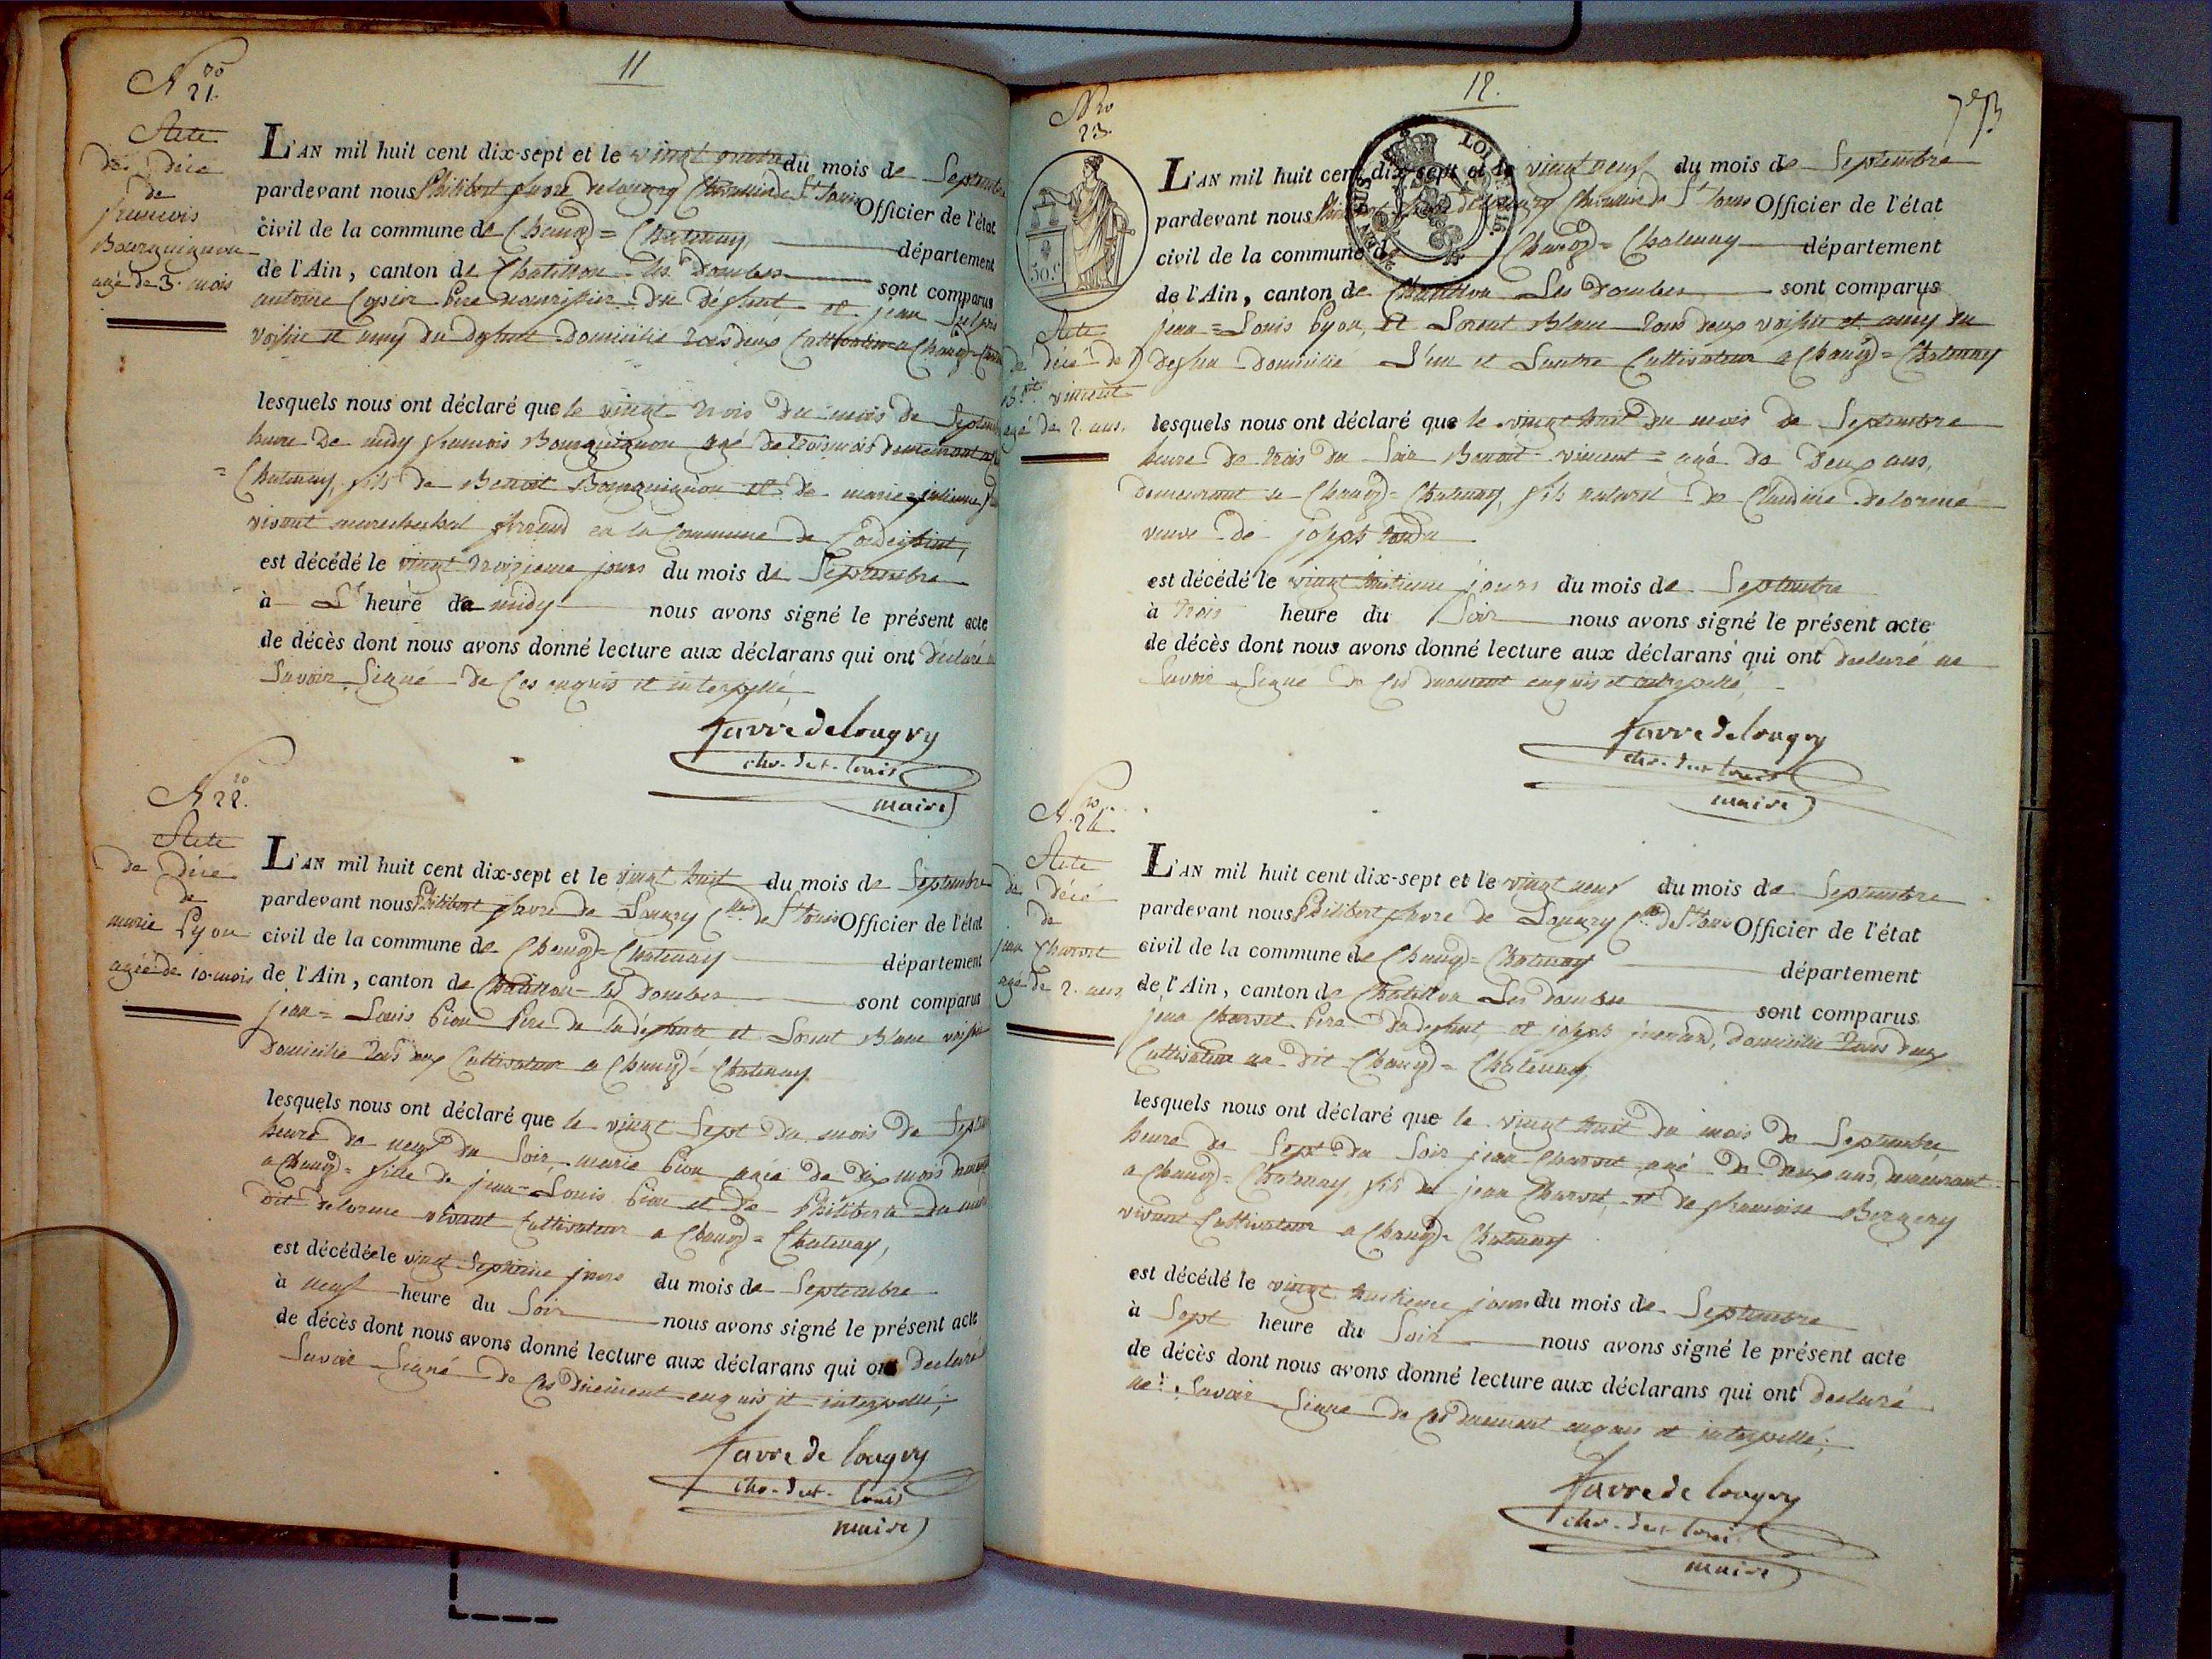 11
Nro
21.
Acte
de décé
de
francois
Bourguignon
agé de 3. mois
L'AN mil huit cent dix-sept et le vingt du mois de Septembre
pardevant nous Philibert favre delongry Chevalier de St Louis Officier de l'état
civil de la commune de Chaneÿ = Chatenay département
de l'Ain, canton de Chatillon les Dombes sont comparus
antoine père nourrissier du défunt, et jean
voisin et amy du defunt domicilié tous deux Cultivateur a
lesquels nous ont déclaré que le vingt trois du mois de
heure de midy francois Bourguignon agé de trois mois demeurant
= Chatenay, fils de Benoit Bourguignon et de marie = julienne
vivant marechechal en la Commune de
est décédé le vingt troizieme jours du mois de Septembre
à L' heure de midy nous avons signé le présent acte
de décès dont nous avons donné lecture aux déclarans qui ont déclaré
Savoir Signé de Ces enquis et interpellé
favre de longry
che. de st. louis
maire
Nro
22.
Acte
de décé
de
marie Pyon
agée de 10. mois
L'AN mil huit cent dix-sept et le vingt huit du mois de Septembre
pardevant nous Philibert favre de Longry Cher de St Louis Officier de l'état
civil de la commune de = Chatenay département
de l'Ain, canton de Chatillon les Dombes sont comparus
jean = Louis pion père de la défunte et Lorent Blanc voisin
domicilié tous deux Cultivateur a = Chatenay
lesquels nous ont déclaré que le vingt Sept du mois de
heure de neuf du Soir marie pion agée de dix mois
a = fille de jean = Louis pion et de Philiberte
dit delorme vivant Cultivateur a = Chatenay,
est décédée le vingt Septieme jours du mois de Septembre
à neuf heure du Soir nous avons signé le présent acte
de décès dont nous avons donné lecture aux déclarans qui ont declaré
Savoir Signé de Ces duement enquis et interpellé,
favre de longry
che. de st. louis
maire
12.
Nro
23.
50.c
LOI
Acte
de décé de
Bt. vincent
agé de 2. ans.
L'AN mil huit cent dix-sept et le vingt neuf du mois de Septembre
pardevant nous Chevalier de St Louis Officier de l'état
civil de la commune de = Chatenay département
de l'Ain, canton de Chatillon Les Dombes sont comparus
jean = Louis Pyon, et Lorent Blanc tous deux voisin et amy du
domicilié L'un et Lautre Cultivateur a = Chatenay
lesquels nous ont déclaré que le vingt huit du mois de Septembre
heure de trois du Soir Benoit vincent = agé de Deux ans,
demeurant a = Chatenay, fils naturel de Claudine delorme
veuve de joseph
est décédé le vingt huitieme jours du mois de Septembre
à trois heure du Soir nous avons signé le présent acte
de décès dont nous avons donné lecture aux déclarans qui ont declaré ne
Savoir Signé de Ces duement enquis et interpellé,
favre de longry
che. de st louis
maire
Nro
24.
Acte
de décé
de
jean Charvet
agé de 2. ans.
L'AN mil huit cent dix-sept et le vingt neuf du mois de Septembre
pardevant nous Philibert favre de Longry Cher de St Louis Officier de l'état
civil de la commune de = Chatenay département
de l'Ain, canton de Chatillon Les Dombes sont comparus
jean Charvet père du defunt, et joseph domicilié tous deux
Cultivateur au dit = Chatenay
lesquels nous ont déclaré que le vingt huit du mois de Septembre
heure de Sept du Soir jean Charvet agé de deux ans, demeurant
a = Chatenay, fils de jean Charvet, et de francoise
vivant Cultivateur a = Chatenay
est décédé le vingt huitieme jours du mois de Septembre
à Sept heure du Soir nous avons signé le présent acte
de décès dont nous avons donné lecture aux déclarans qui ont declaré
ne Savoir Signé de Ces duement enquis et interpellé;
favre de longry
che. de st louis
maire